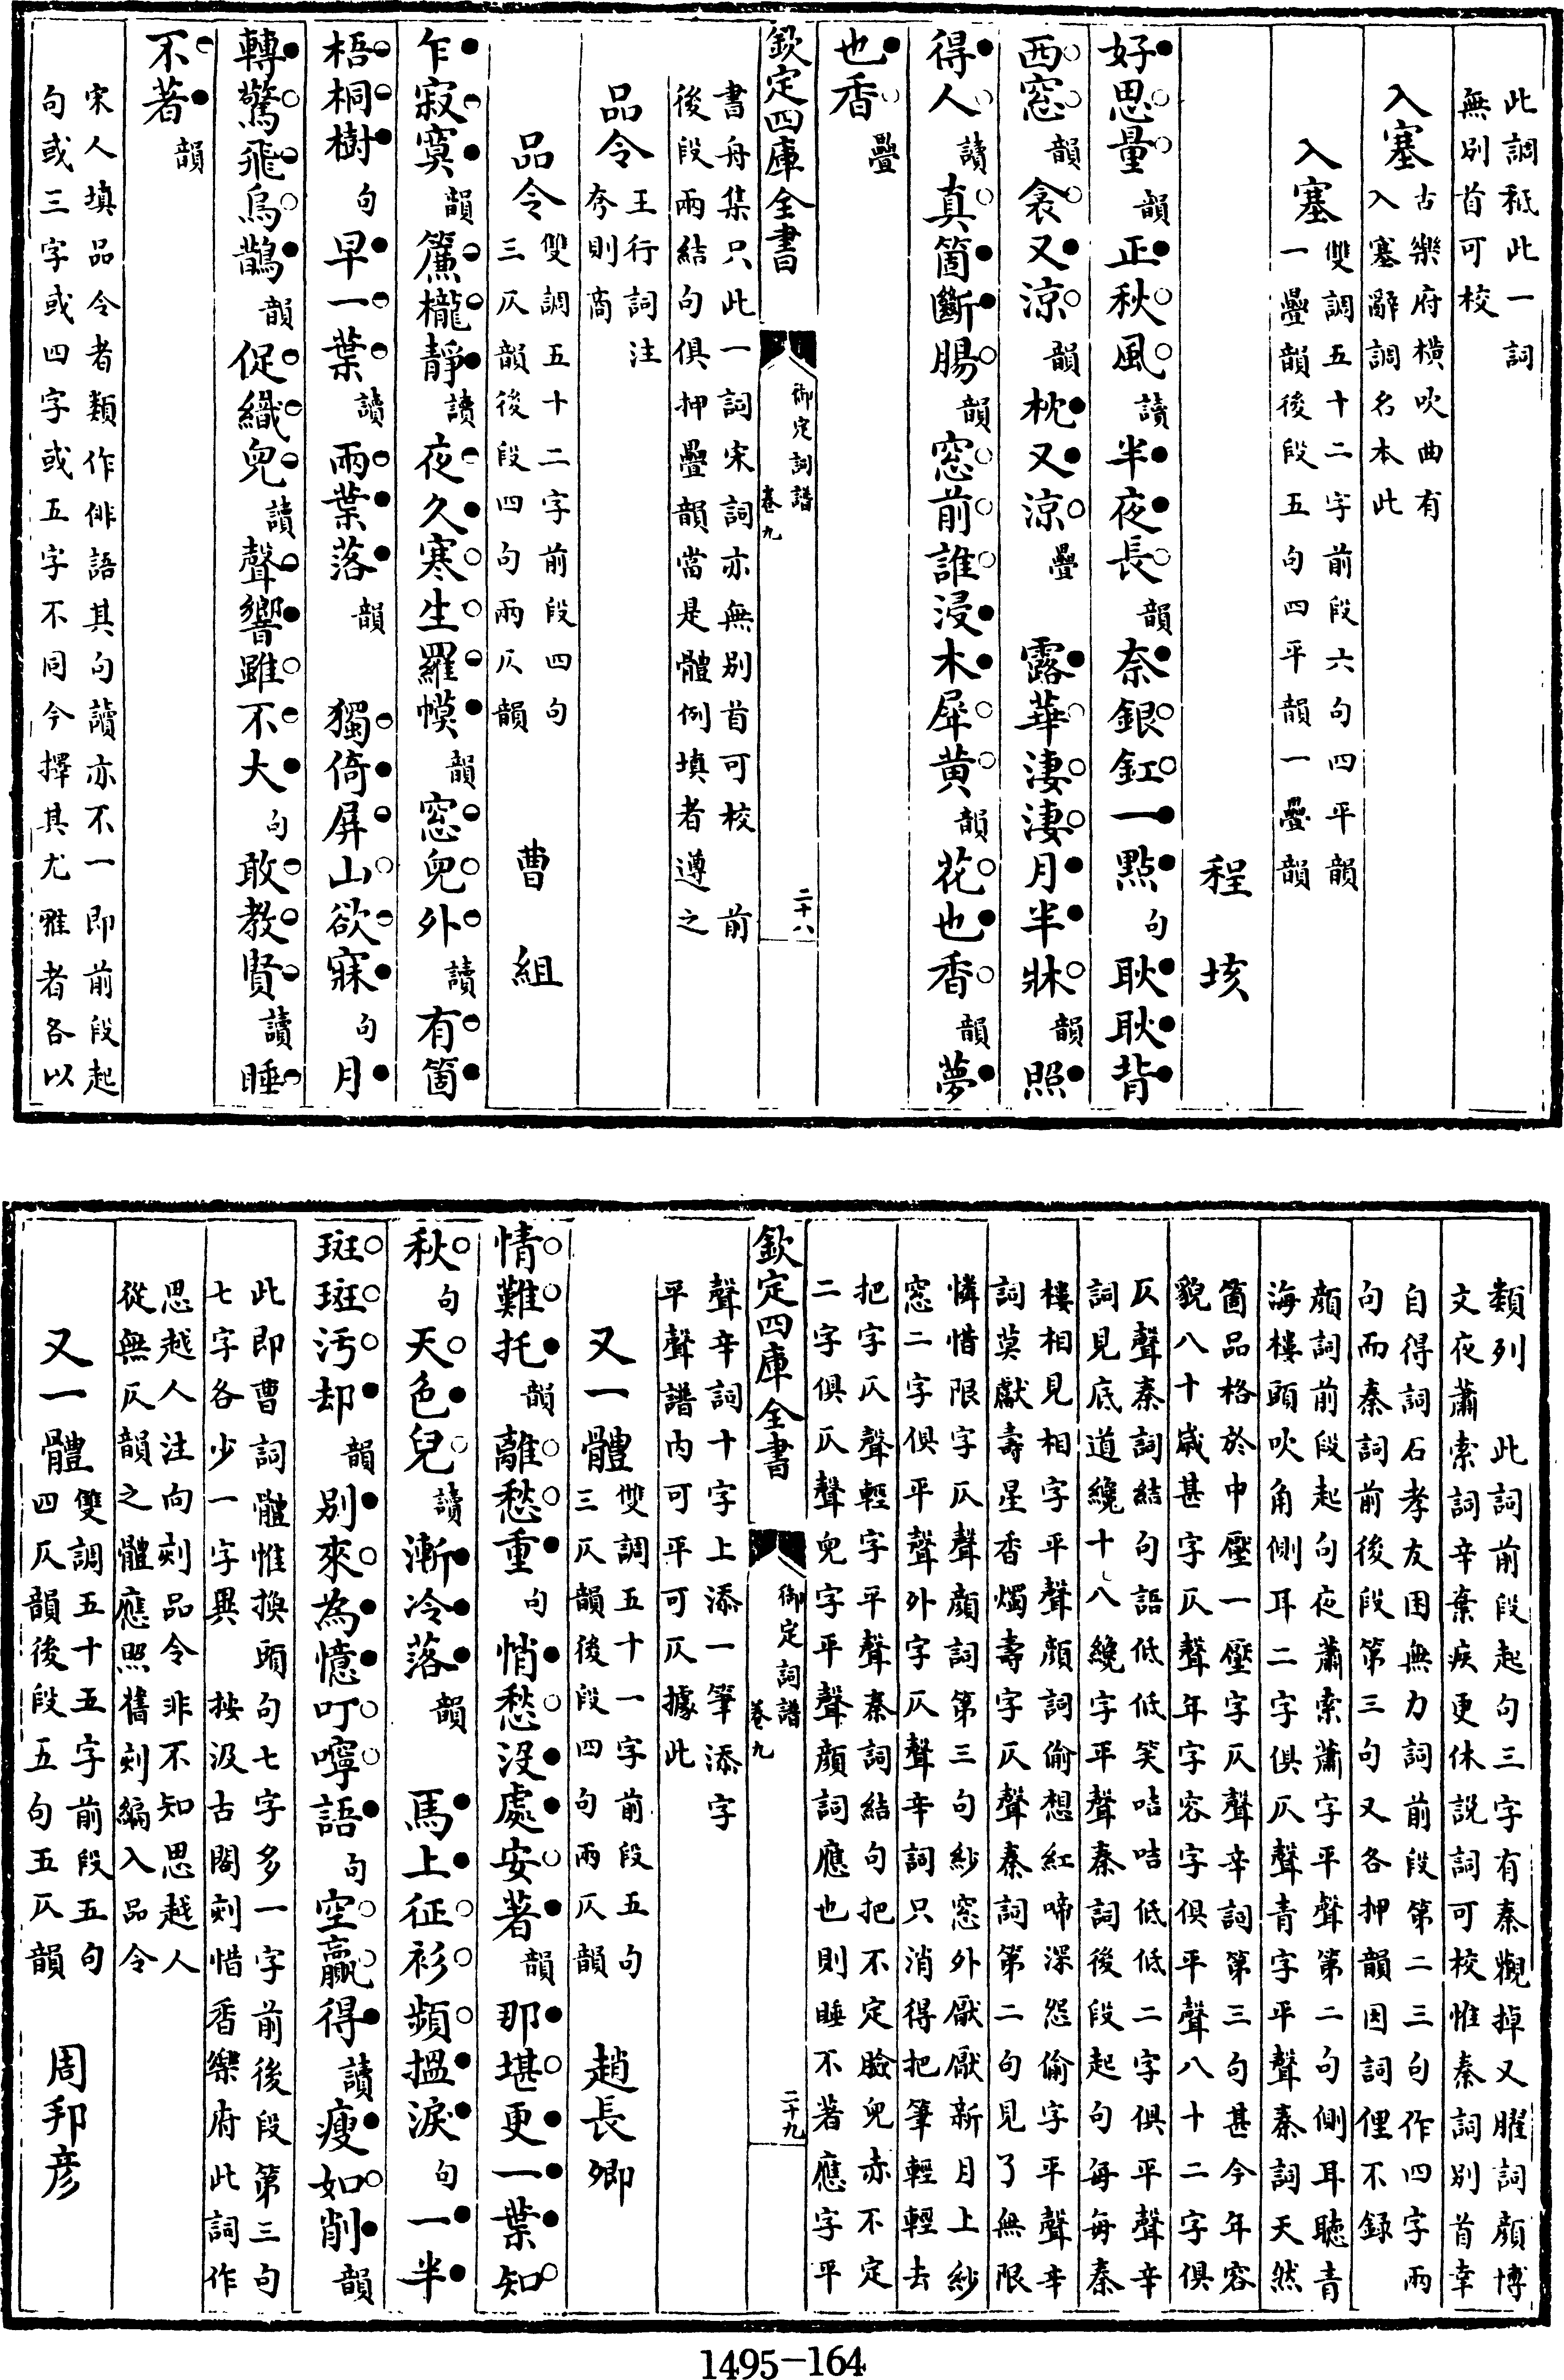 此調秪此一詞
無別首可校
入塞 古樂府橫吹曲有
入塞辭調名本此
入塞 雙調五十二字前段六句四平韻
一疊韻後段五句四平韻一疊韻
程垓
好思量韻正秋風讀半夜長韻奈銀釭一點句耿耿背
西窓韻衾又涼韻枕又涼疊 露華淒淒月半牀韻照
得人讀真箇斷腸韻窓前誰浸木犀黃韻花也香韻夢
也香疊
欽定四庫全書 御定詞譜 卷九 二十八
書舟集只此一詞宋詞亦無別首可校 前
後段兩結句俱押疊韻當是體例填者遵之
品令 王行詞注
夸則商
品令 雙調五十二字前段四句
三仄韻後段四句兩仄韻 曹組
乍寂寞韻簾櫳靜讀夜久寒生羅幙韻窓兒外讀有箇
梧桐樹句早一葉讀兩葉落韻 獨倚屏山欲寐句月
轉驚飛烏鵲韻促織兒讀聲響雖不大句敢教賢讀睡
不著韻
宋人填品令者類作俳語其句讀亦不一即前段起
句或三字或四字或五字不同今擇其尤雅者各以
類列 此詞前段起句三字有秦觀掉又臞詞顏博
文夜蕭索詞辛棄疾更休說詞可校惟秦詞別首幸
自得詞石孝友困無力詞前段第二三句作四字兩
句而秦詞前後段第三句又各押韻因詞俚不録
顏詞前段起句夜蕭索蕭字平聲第二句側耳聽青
海樓頭吹角側耳二字俱仄聲青字平聲秦詞天然
箇品格於中壓一壓字仄聲辛詞第三句甚今年容
貌八十歲甚字仄聲年字容字俱平聲八十二字俱
仄聲秦詞結句語低低笑咭咭低低二字俱平聲辛
詞見底道纔十八纔字平聲秦詞後段起句每每秦
樓相見相字平聲顏詞偷想紅啼深怨偷字平聲辛
詞莫獻壽星香燭壽字仄聲秦詞第二句見了無限
憐惜限字仄聲顏詞第三句紗窓外厭厭新月上紗
窓二字俱平聲外字仄聲辛詞只消得把筆輕輕去
把字仄聲輕字平聲秦詞結句把不定臉兒赤不定
二字俱仄聲兒字平聲顏詞應也則睡不著應字平
欽定四庫全書 御定詞譜 卷九 二十九
聲辛詞十字上添一筆添字
平聲譜內可平可仄據此
又一體 雙調五十一字前段五句
三仄韻後段四句兩仄韻 趙長卿
情難托韻離愁重句悄愁沒處安著韻那堪更一葉知
秋句天色兒讀漸冷落韻 馬上征衫頻搵淚句一半
斑斑汚却韻別來為憶叮嚀語句空贏得讀瘦如削韻
此即曹詞體惟換頭句七字多一字前後段第三句
七字各少一字異 按汲古閣刻惜香樂府此詞作
思越人注向刻品令非不知思越人
從無仄韻之體應照舊刻編入品令
又一體 雙調五十五字前段五句
四仄韻後段五句五仄韻 周邦彦
1495-164